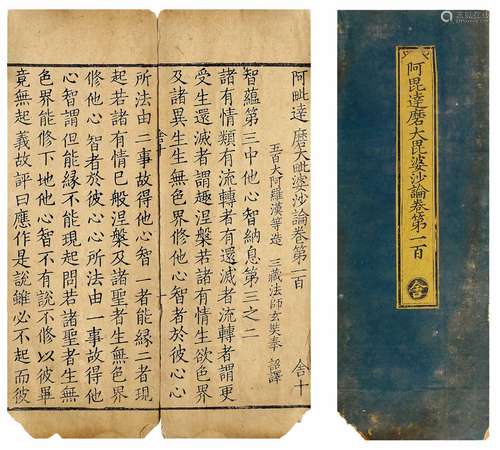 阿毗達磨大毗婆沙論卷第一百 舍十
五百大阿羅漢等造 三藏法師玄奘奉 詔譯
智蘊第三中他心智納息第三之二
諸有情類有流轉者有還滅者流轉者謂更
受生還滅者謂趣涅槃若諸有情生欲色界
及諸異生生無色界修他心智者於彼心心
舍十
所法由二事故得他心智一者能緣二者現
起若諸有情已般涅槃及諸聖者生無色界
修他心智者於彼心心所法由一事故得他
心智謂但能緣不能現起問若諸聖者生無
色界能修下地他心智不有說不修以彼畢
竟無起義故評曰應作是說雖必不起而彼
阿毘達磨大毘婆沙論卷第一百
舍